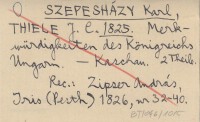 O SZEPESHÁZY Karl,
THIELE J. C. 1825. Merk-
würdigkeiten des Königreichs
Ungarn. — Kaschau. 2 Theile.
Rec.: Zipser András,
Iris (Pesth) 1826, nr 32-40.